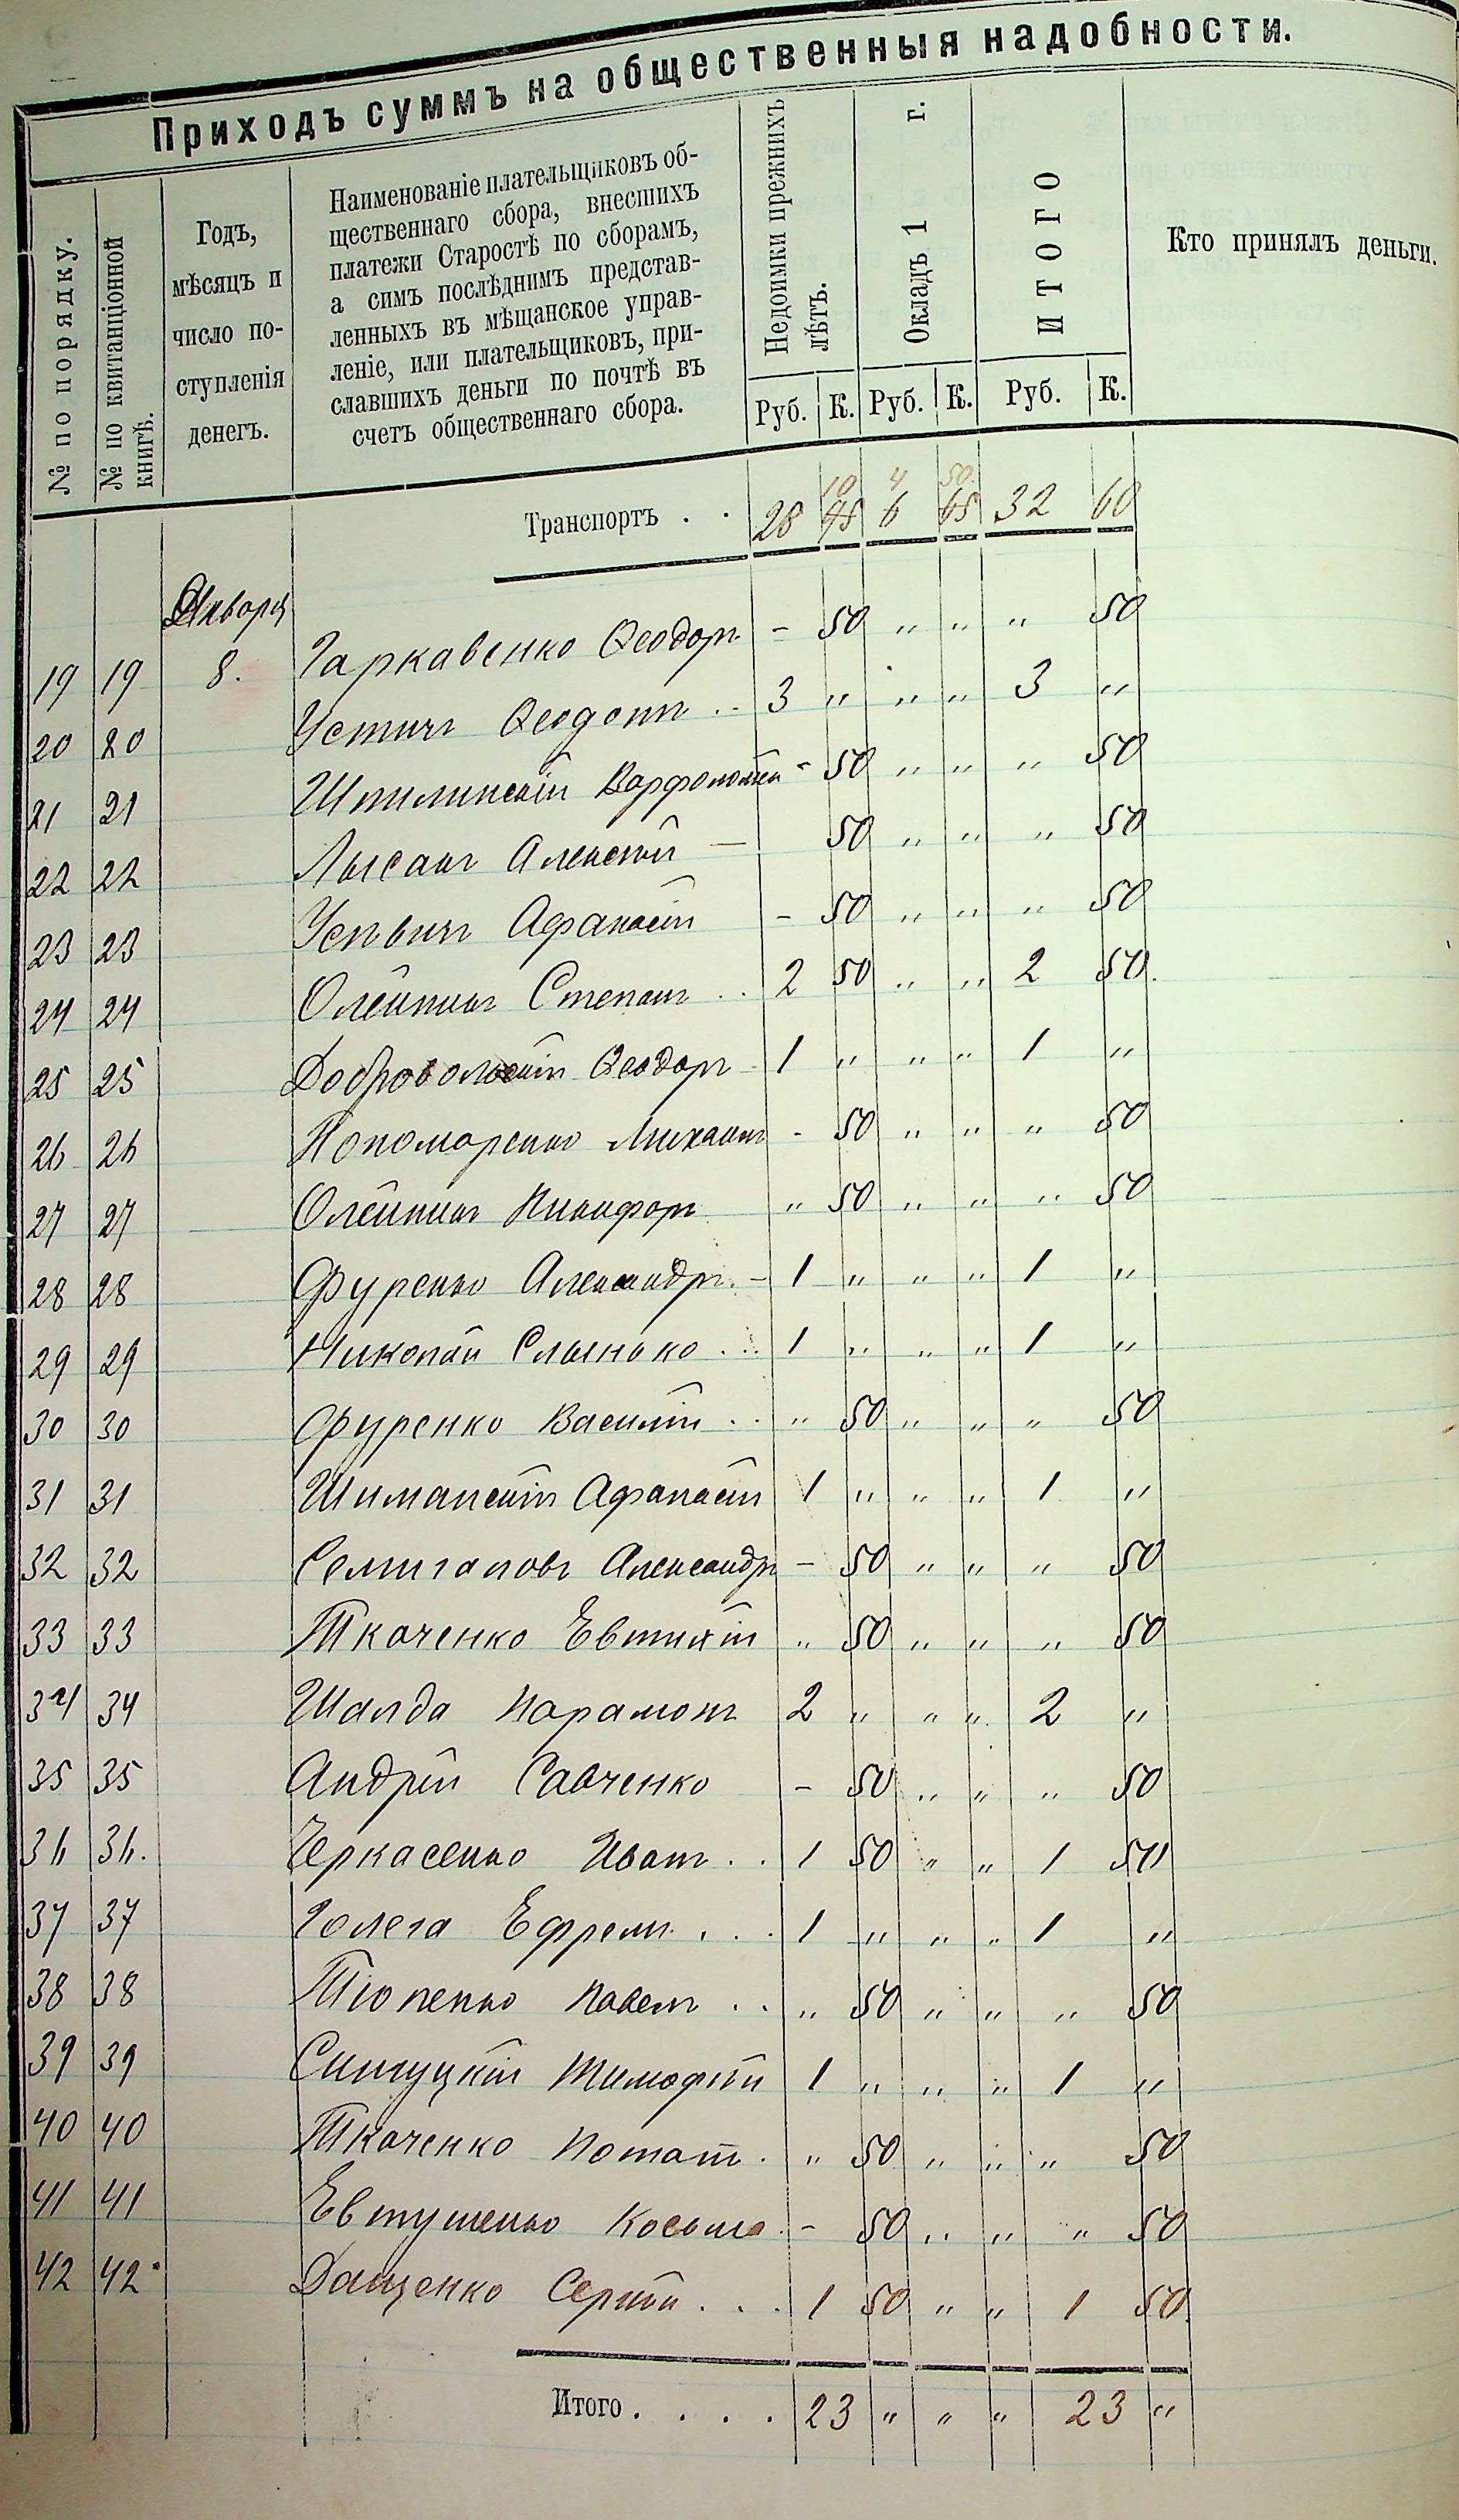 Приходъ суммъ на общественныя надобности.
№ по порядку.
№ по квитанціонной
книгѣ.
Годъ,
мѣсяцъ и
число по-
ступленія
денегъ.
Наименованіе плательщиковъ об-
щественнаго сбора, внесшихъ
платежи Старостѣ по сборамъ,
а симъ послѣднимъ представ-
ленныхъ въ мѣщанское управ-
леніе, или плательщиковъ, при-
славшихъ деньги по почтѣ въ
счетъ общественнаго сбора.
Недоимки прежнихъ
лѣтъ.
Окладъ 1 г.
ИТОГО
Кто принялъ деньги.
Руб. К. Руб. К. Руб. К.
10 4 50
Транспортъ . . 28 45 6 65 32 60
Января
19 19 8. Гаркавенко Ѳеодоръ - 50 " " " 50
20 20 Устичъ Ѳеодотъ .. 3 " " " 3 "
21 21 Шпилинскій Варфоломѣй - 50 " " " 50
22 22 Лысакъ Алексѣй — 50 " " " 50
23 23 Афанасій - 50 " " " 50
24 24 Олейникъ Степанъ . . 2 50 " " 2 50.
25 25 Добровольскій Ѳеодоръ 1 " " " 1 "
26 26 Пономаренко Михаилъ - 50 " " " 50
27 27 Олейникъ Никифоръ " 50 " " " 50
28 28 Фуренко Александръ. - 1 " " " 1 "
29 29 Николай Слынько . . . 1 " " " 1 "
30 30 Фуренко Василій . . " 50 " " " 50
31 31 Шиманскій Афанасій 1 " " " 1 "
32 32 Семигановъ Александръ - 50 " " " 50
33 33 Ткаченко Евтихій " 50 " " " 50
34 34 Шалда Парамонъ 2 " " " 2 "
35 35 Андрій Савченко - 50 " " " 50
36 36. Черкасенко Иванъ . . 1 50 " " 1 50
37 37 Голега Ефремъ . . . 1 " " " 1 "
38 38 Тюпенко Павелъ . . " 50 " " " 50
39 39 Тимофѣй 1 " " " 1 "
40 40 Ткаченко Потапъ . " 50 " " " 50
41 41 Евтушенко Косьма - 50 " " " 50
42 42. Дащенко Сергѣй . . . 1 50 " " 1 50.
Итого . . . . 23 " " " 23 "